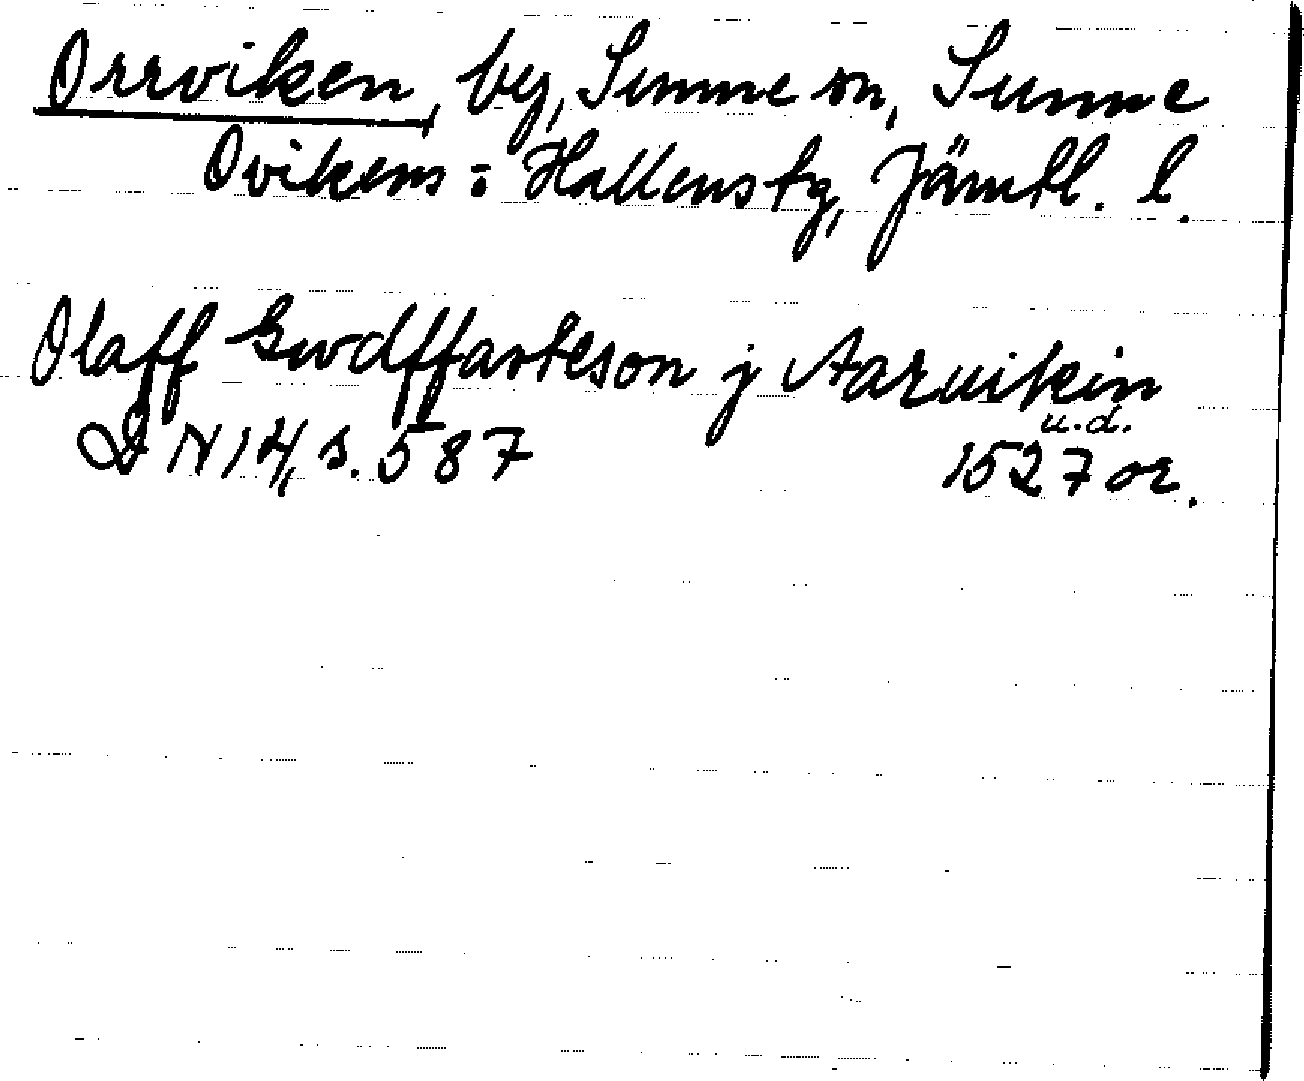 Orrviken, by, Sunne sn, Sunne
Ovikens = Hallens tg, Jämtl. l.
Olaff Gwdffasteson j Aarwikin
u.d.
DN 14, s. 587 1527 or.